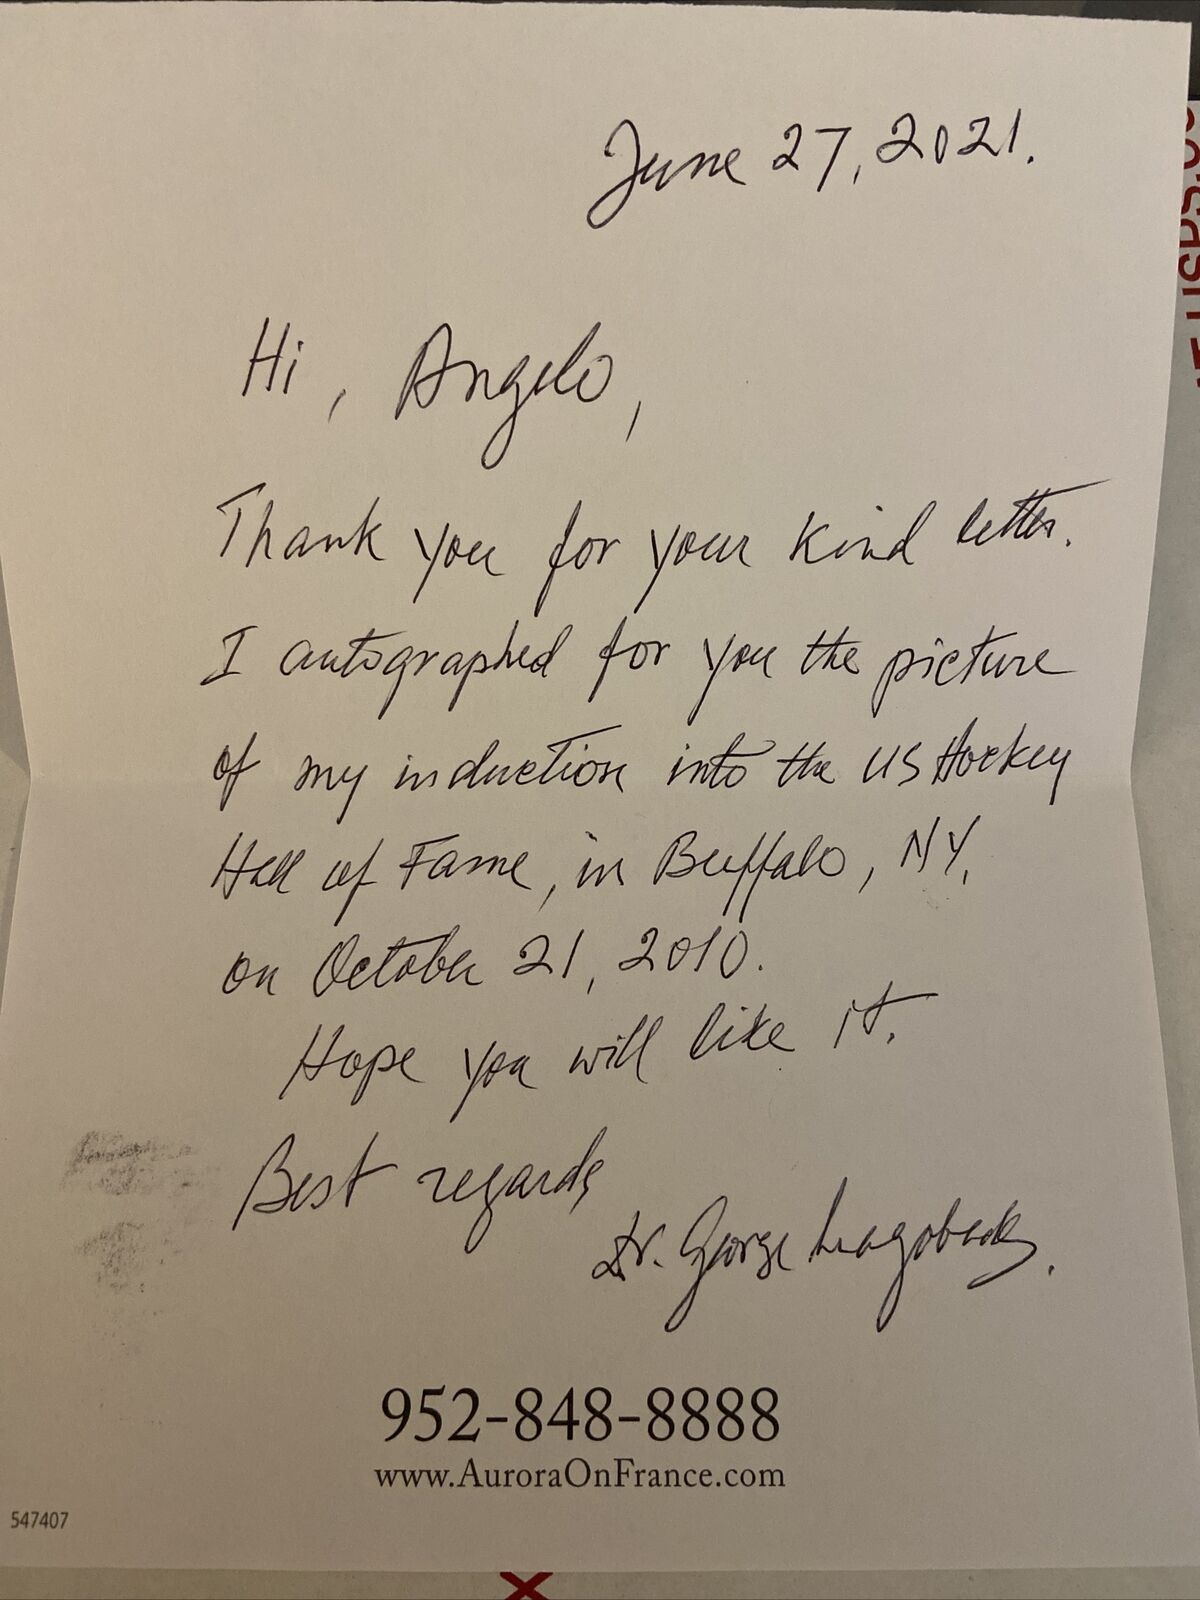 June 27, 2021.
Hi, Angelo,
Thank you for your kind letter.
I autographed for you the picture
of my induction into the US Hockey
Hall of Fame, in Buffalo, NY,
on October 21, 2010.
Hope you will like it.
Best regards
Dr. George
952-848-8888
www.AuroraOnFrance.com
547407